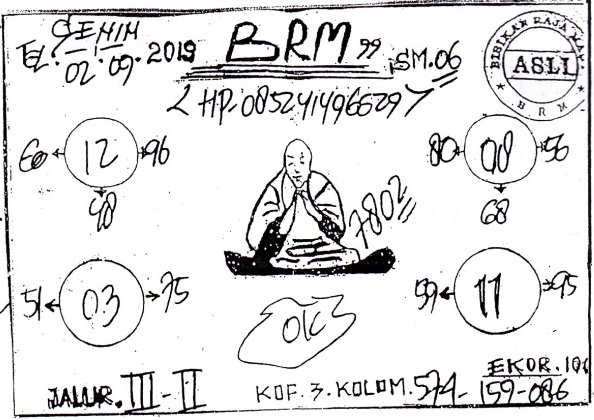 SENIN
TGL: 02-09-2019
BRM 99
SM.06
BISIKAN RAJA
ASLI
B R M
< HP.085241496629 >
60 ← 12 → 96
48
80 ← 08 → 56
68
7802
51 ← 03 → 75
59 ← 11 → 95
OK3
JALUR. III - II
KOF. 3. KOLOM. 574 - 159-086
EKOR.